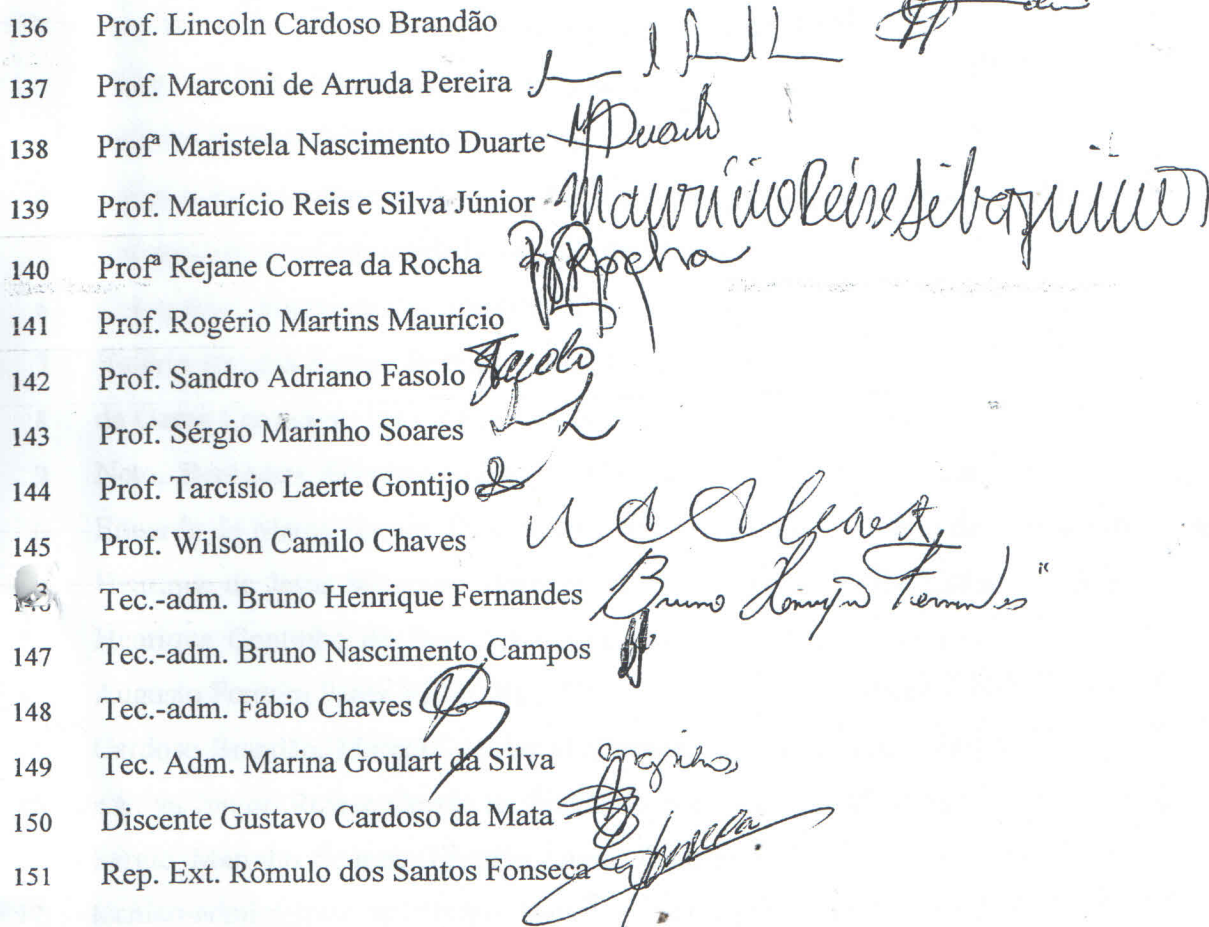 136 Prof. Lincoln Cardoso Brandão
137 Prof. Marconi de Arruda Pereira
138 Profª Maristela Nascimento Duarte MDuarte
139 Prof. Maurício Reis e Silva Júnior Maurício Reis e Silva Junior
140 Profª Rejane Correa da Rocha Rocha
141 Prof. Rogério Martins Maurício
142 Prof. Sandro Adriano Fasolo Fasolo
143 Prof. Sérgio Marinho Soares
144 Prof. Tarcísio Laerte Gontijo
145 Prof. Wilson Camilo Chaves
Tec.-adm. Bruno Henrique Fernandes Bruno Henrique Fernandes
147 Tec.-adm. Bruno Nascimento Campos
148 Tec.-adm. Fábio Chaves
149 Tec. Adm. Marina Goulart da Silva
150 Discente Gustavo Cardoso da Mata
151 Rep. Ext. Rômulo dos Santos Fonseca Fonseca